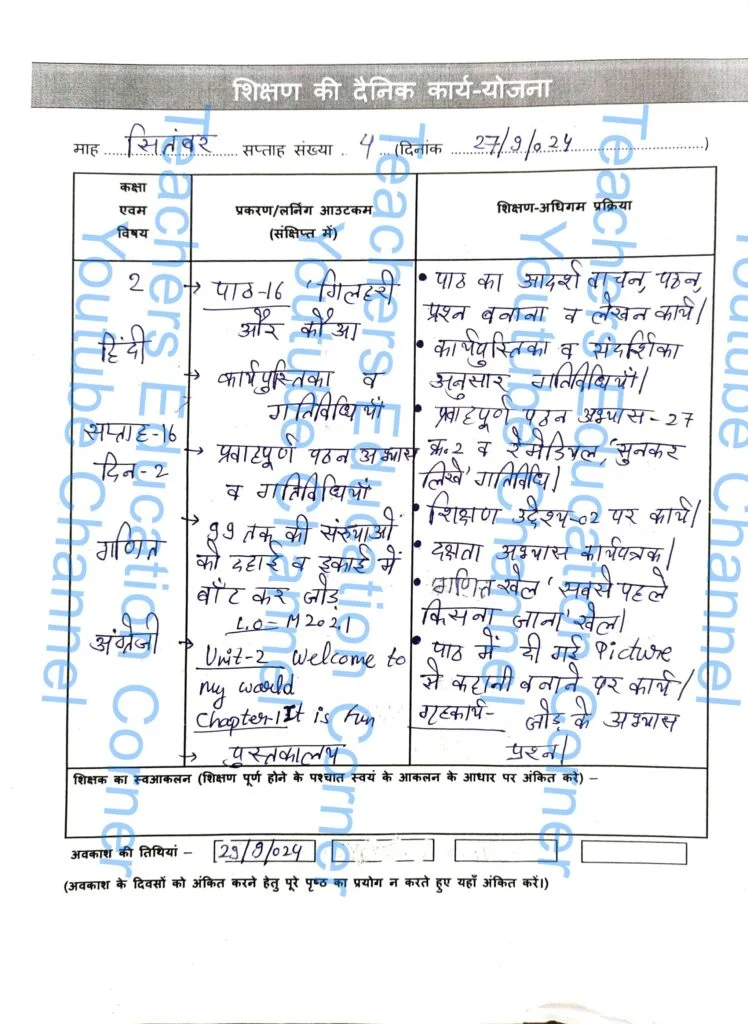 शिक्षण की दैनिक कार्य-योजना
माह सितंबर सप्ताह संख्या 4 (दिनांक 27/9/024)
कक्षा
एवम
विषय
प्रकरण/लर्निंग आउटकम
(संक्षिप्त में)
शिक्षण-अधिगम प्रक्रिया
2
हिंदी
सप्ताह-16
दिन-2
गणित
अंग्रेजी
→ पाठ-16 'गिलहरी
और कौआ
→ कार्यपुस्तिका व
गतिविधियाँ
→ प्रवाहपूर्ण पठन अभ्यास
व गतिविधियाँ
→ 99 तक की संख्याओं
को दहाई व इकाई में
बाँट कर जोड़
L.O- M202.1
→ Unit-2 Welcome to
my world
Chapter-1 It is fun
→ पुस्तकालय
• पाठ का आदर्श वाचन, पठन,
प्रश्न बनाना व लेखन कार्य।
• कार्यपुस्तिका व संदर्शिका
अनुसार गतिविधियाँ।
• प्रवाहपूर्ण पठन अभ्यास-27
क्र.2 व रेमेडियल, 'सुनकर
लिखें' गतिविधि।
• शिक्षण उद्देश्य-02 पर कार्य।
• दक्षता अभ्यास कार्यपत्रक।
• गणित खेल 'सबसे पहले
किसना जाना' खेल।
• पाठ में दी गई Picture
से कहानी बनाने पर कार्य।
गृहकार्य- जोड़ के अभ्यास
प्रश्न।
शिक्षक का स्वआकलन (शिक्षण पूर्ण होने के पश्चात स्वयं के आकलन के आधार पर अंकित करें) –
अवकाश की तिथियां – 29/9/024
(अवकाश के दिवसों को अंकित करने हेतु पूरे पृष्ठ का प्रयोग न करते हुए यहाँ अंकित करें।)
Teachers Education Corner
Youtube Channel
Teachers Education Corner
Youtube Channel
Teachers Education Corner
Youtube Channel